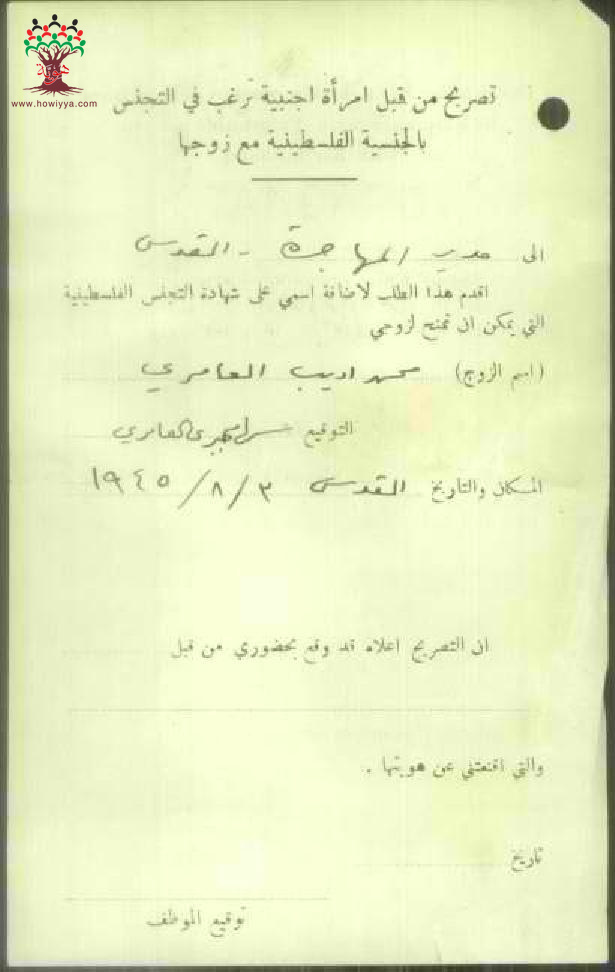 www.howiyya.com
تصريح من قبل امرأة اجنبية ترغب في التجنس
بالجنسية الفلسطينية مع زوجها
الى مدير المهاجرة - القدس
اقدم هذا الطلب لاضافة اسمي على شهادة التجنس الفلسطينية
التي يمكن ان تمنح لزوجي
(اسم الزوج) محمد اديب العامري
التوقيع العامري
المكان والتاريخ القدس ٣/٨/١٩٤٥
ان التصريح اعلاه قد وقع بحضوري من قبل
والتي اقنعتني عن هويتها .
تاريخ
توقيع الموظف